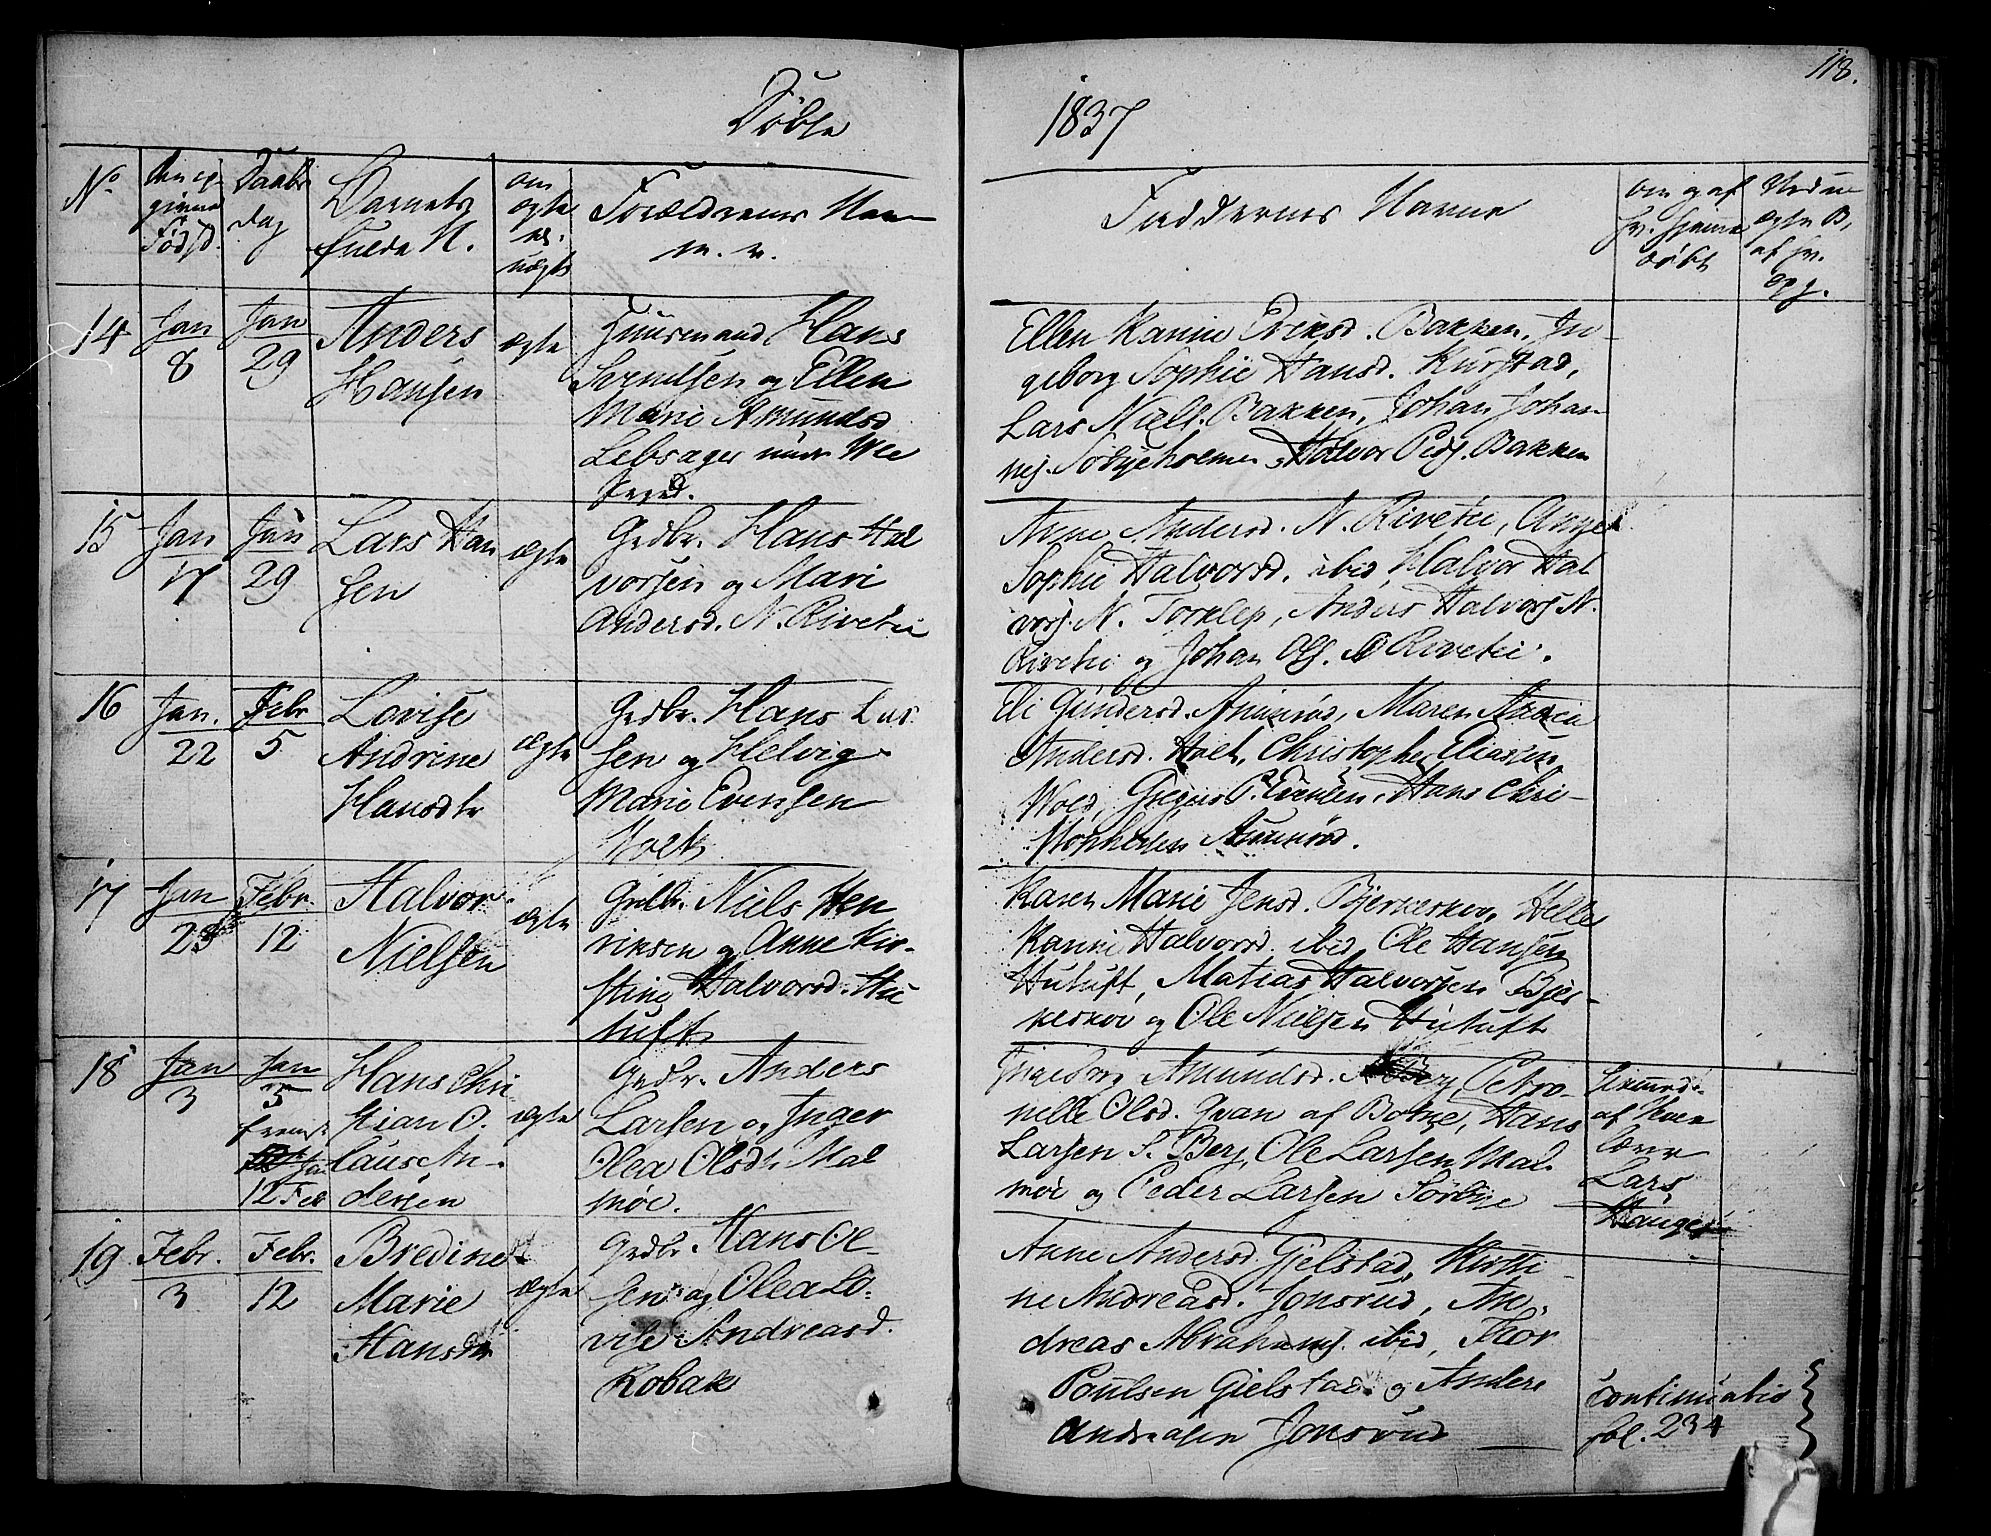 118.
Döbte
1837
No
den op
givne
Fødsd.
Daabs
dag
Barnets
fulde N.
om
ægte
el.
uægte
Forældrenes Nav
m. v.
Faddernes Navne
om og af
hv. hjemme
døbt
Ved u
ægte B,
af hv.
opg.
14
Jan
8
Jan
29
Anders
Hansen
ægte
Huusmand Hans
og Ellen
Marie Amundsd
Ellen Karine Eriksd. Bakken, In-
geborg Sophie Hansd. Kurstad,
Lars Niels. Bakken, Johan Johan
Halvor Pedj. Bakken
15
Jan
17
Jan
29
Lars Han
sen
ægte
Grdbr. Hans Hal
vorsen og Mari
Andersd. N. Rivetei
Anne Andersd. N. Rivetei,
Sophie Halvorsd. ibid, Halvor Hal
vorsj. N. Torklep, Anders Halvorsj N.
Rivetei og Johan Olsj. Rivetei.
16
Jan.
22
Febr
5
Lovise
Andrine
Hansdtr
ægte
Grdbr. Hans Lar
sen og Helvig
Marie Evensen
Holt
Eli Gundersd. Aumrød, Maren Maria
Andersd. Holt, Christopher Eliasen
Hans Chri-
stophersen Aumrød.
17
Jan
Febr.
12
Halvor
Nielsen
ægte
Grdbr. Niels Hen
riksen og Anne Kir-
stine Halvorsd. Hu
tuft
Karen Marie Jensd. Bjerkeskov, Helle
Karine Halvorsd. ibid, Ole Hansen
Hutuft, Matias Halvorsen Bjer-
keskov og Ole Nielsen Hutuft
18
Jan
3
Jan
5
fremst.
12 Feb
Hans Chri
stian O.
laus An-
dersen
ægte
Grdbr. Anders
Larsen og Inger
Olea Olsdtr Mal
møe.
Ingeborg Amundsd. Berg, Petro-
nelle Olsd. Hvan af Botne, Hans
Larsen S. Berg, Ole Larsen Mal-
møe og Peder Larsen Sørbye
hiemmed.
af Skoe
lærer
Lars
Hauge
19
Febr.
3
Febr.
12
Bredine
Marie
Hansdtr
ægte
Grdbr. Hans Ol-
sen og Olea Lo-
vise Andreasd.
Kobak
Anne Andersd. Gjelstad, Kirsti-
ne Andreasd. Jonsrud, An-
dreas Abrahamsj. ibid, Thor
Poulsen Gielstad og Anders
Andreasen Jonsrud
continuatio
fol. 234